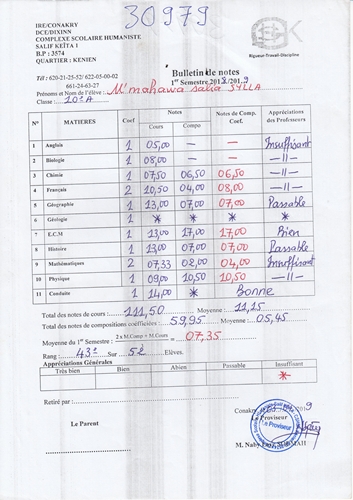 30979
IRE/CONAKRY
DCE/DIXINN
COMPLEXE SCOLAIRE HUMANISTE
SALIF KEÏTA 1
B.P : 3574
QUARTIER : KENIEN
Rigueur-Travail-Discipline
Tél : 620-21-25-52/ 622-05-00-02
661-24-63-27
Bulletin de notes
1er Semestre 2018/2019
Prénoms et Nom de l'élève : M'mahawa salia SYLLA
Classe : 10e A
N° MATIERES Coef Notes Notes de Comp. Coef. Appréciations des Professeurs
Cours Compo
1 Anglais 1 05,00 — — Insuffisant
2 Biologie 1 08,00 — — —11—
3 Chimie 1 07,50 06,50 06,50 —11—
4 Français 2 10,50 04,00 08,00 —11—
5 Géographie 1 13,00 07,00 07,00 Passable
6 Géologie 1 * * * *
7 E.C.M 1 13,00 17,00 17,00 Bien
8 Histoire 1 13,00 07,00 07,00 Passable
9 Mathématiques 2 07,33 02,00 04,00 Insuffisant
10 Physique 1 09,00 10,50 10,50 —11—
11 Conduite 1 14,00 * Bonne
Total des notes de cours : 111,50 Moyenne : 11,15
Total des notes de compositions coefficiées : 59,95 Moyenne : 05,45
Moyenne du 1er Semestre : 2 x M.Comp + M.Cours = 07,35
Rang : 43e Sur 52 Elèves.
Appréciations Générales
Très bien Bien Abien Passable Insuffisant
*
Retiré par :
Conakry
Le Parent
Le Proviseur
M. Naby